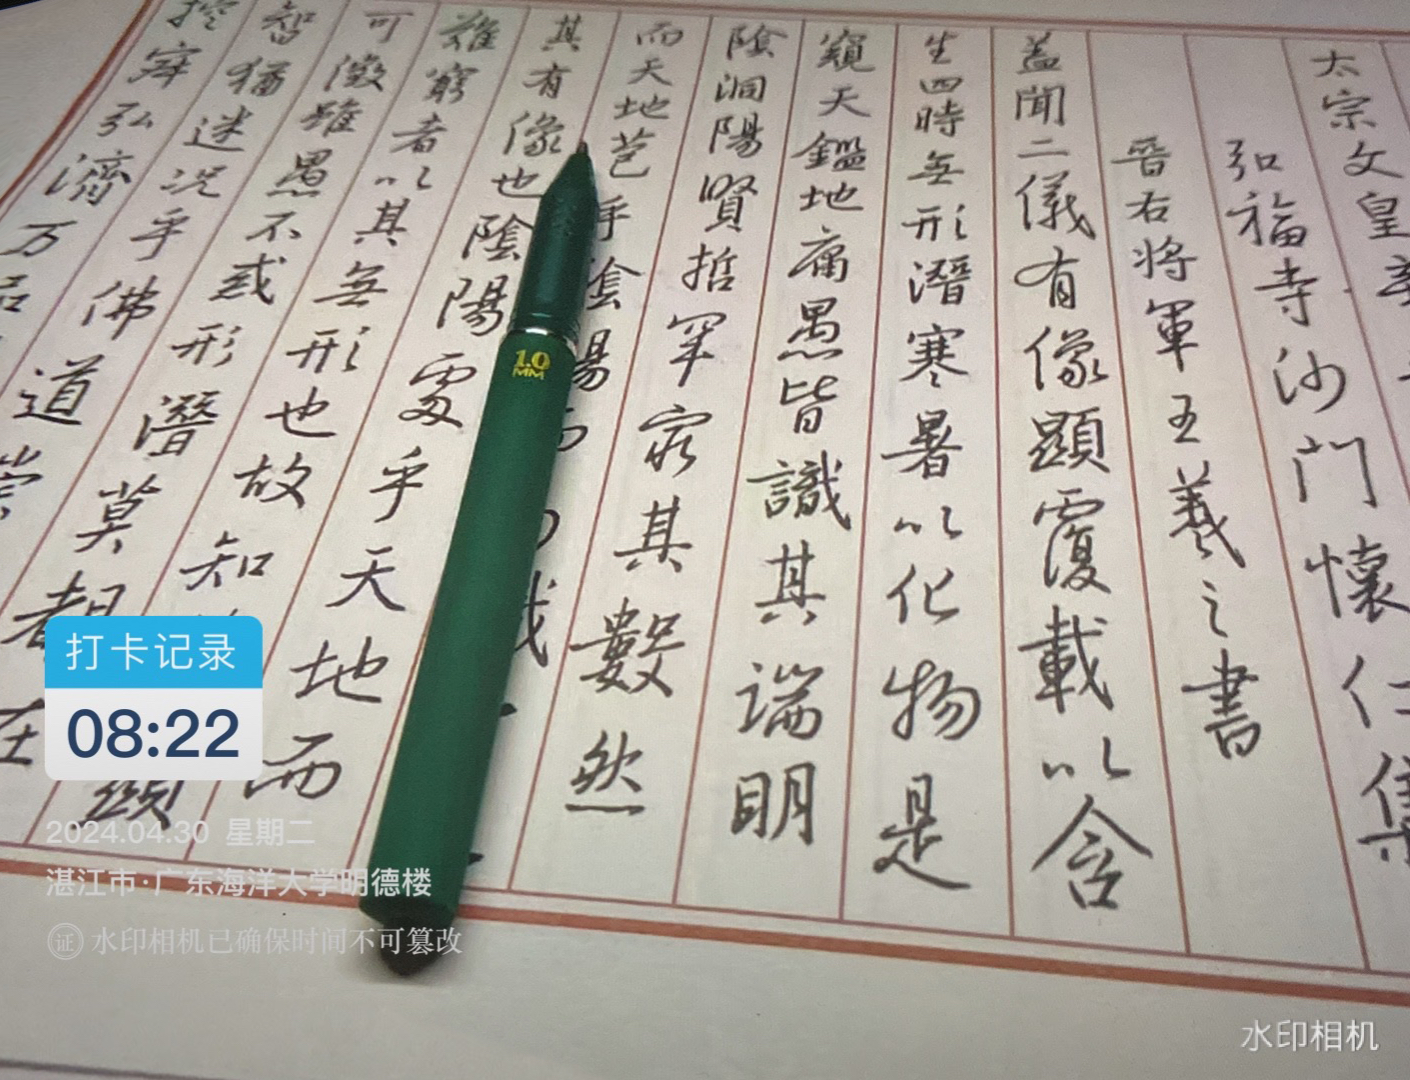 太宗文皇
弘福寺沙門懷仁集
晉右將軍王羲之書
蓋聞二儀有像顯覆載以含
生四時無形潛寒暑以化物是
窺天鑑地庸愚皆識其端明
陰洞陽賢哲罕窮其數然
而天地苞乎陰陽而
其有像也陰陽
難窮者以其無形也故知
可徵雖愚不惑形潛莫覩在
智猶迷況乎佛道崇
控寂弘濟万品
處乎天地而
1.0
MM
打卡记录
08:22
2024.04.30 星期二
湛江市·广东海洋大学明德楼
证 水印相机已确保时间不可篡改
水印相机